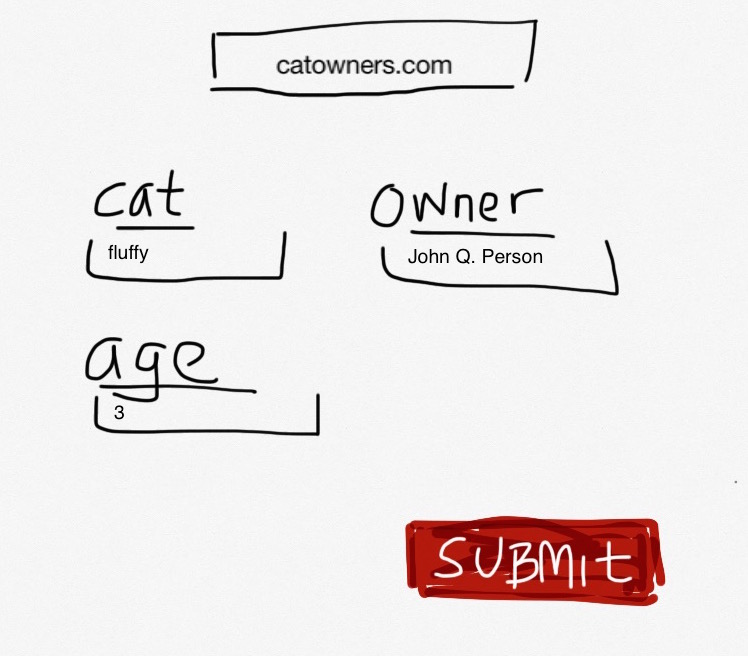 catowners.com
cat
fluffy
owner
John Q. Person
age
3
SUBMIT